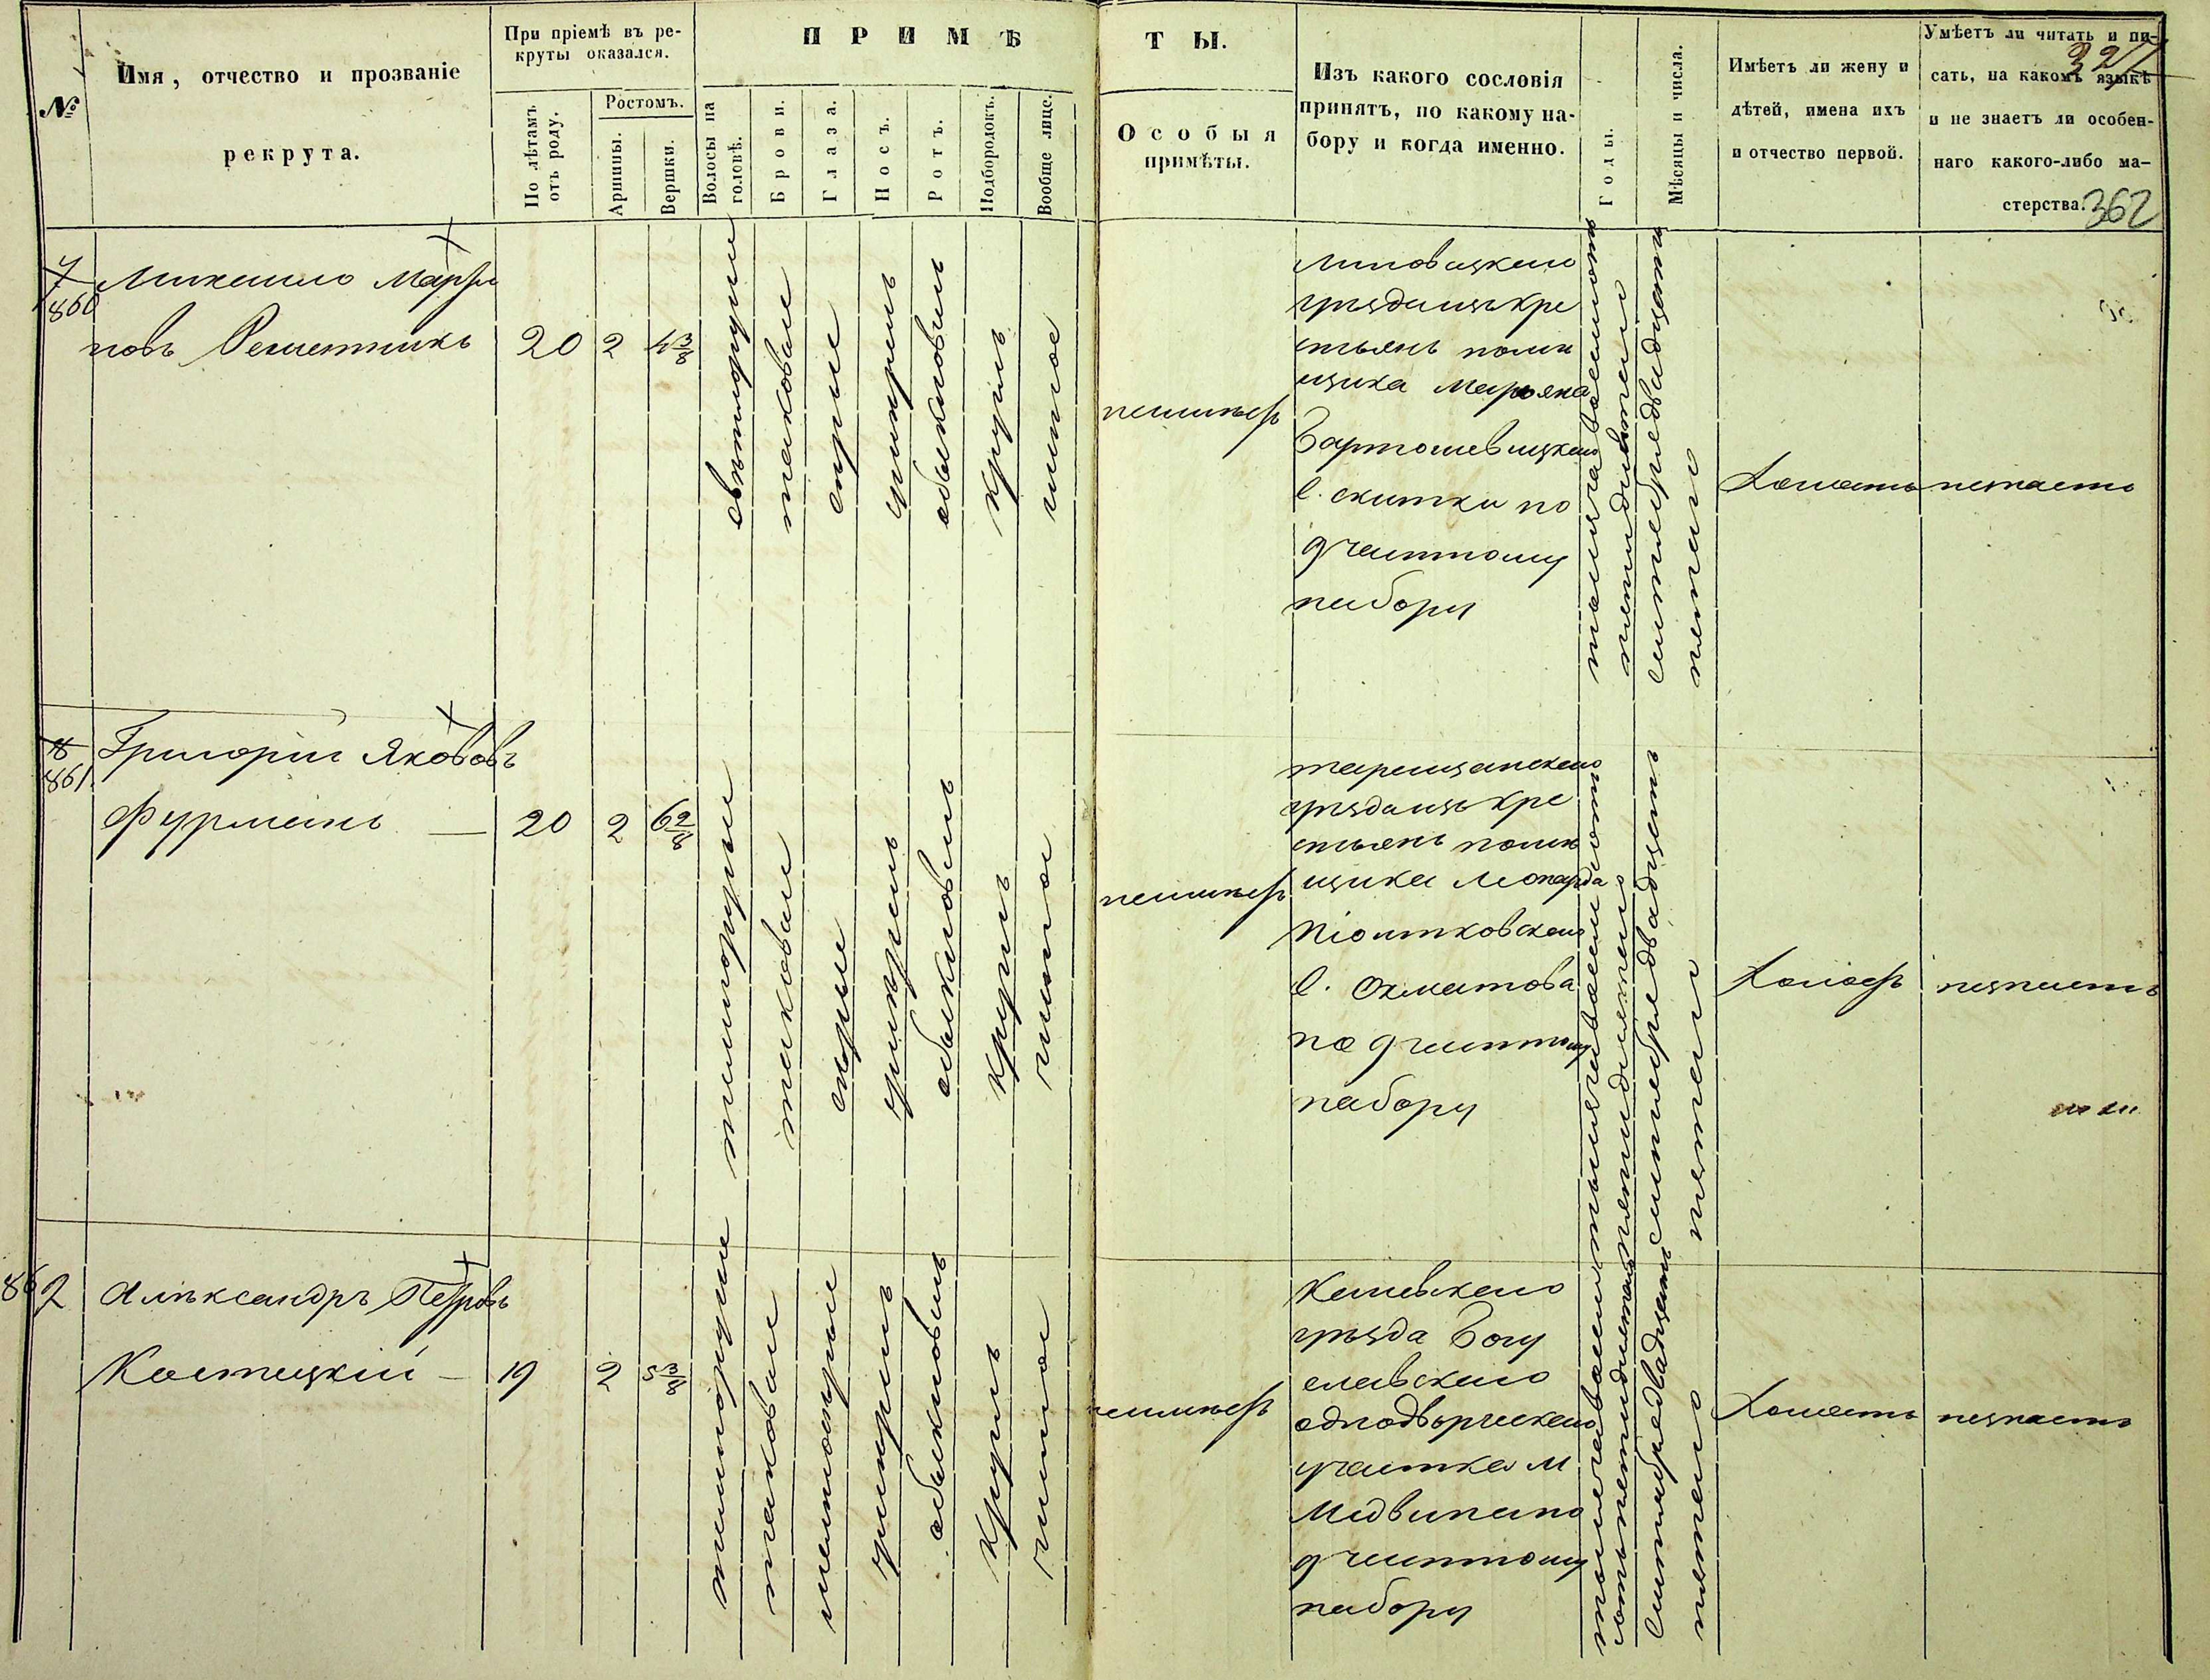 №
Имя, отчество и прозваніе
рекрута.
При пріемѣ въ ре-
круты оказался.
По лѣтамъ
отъ роду.
Ростомъ.
Аршины.
Вершки.
ПРИМѢ
Волосы на
головѣ.
Брови.
Глаза.
Носъ.
Ротъ.
Подбородокъ.
Вообще лице.
ТЫ.
Особыя
примѣты.
Изъ какого сословія
принятъ, по какому на-
бору и когда именно.
Годы.
Мѣсяцы и числа.
Имѣетъ ли жену и
дѣтей, имена ихъ
и отчество первой.
Умѣетъ ли читать и пи-
сать, на какомъ языкѣ
и не знаетъ ли особен-
наго какого-либо ма-
стерства.
362
7
860
Михаило Марты
новъ Решетникъ
20
2
4 3/8
свѣтлорусые
таковые
сѣрые
умѣрен.
обыкновен.
кругл.
чистое
неимѣетъ
Липовецкаго
уѣзда изъ кре
стьянъ помѣ
щика Марьяна
Бартошевицкаго
с. скитки по
9 частному
набору
тысяча восемьсотъ
пятидесятаго
Сентября двадцать
пятаго
Холостъ
незнаетъ
8
861.
Григорій Яковов
Фурманъ —
20
2
6 2/8
темнорусые
таковые
сѣрые
умѣрен.
обыкновен.
кругл.
чистое
неимѣетъ
таращанскаго
уѣзда изъ кре
стьянъ помѣ
щика Леонарда
Піонтковскаго
с. Охматова
по 9 частному
набору
тысяча восемьсотъ
пятидесятаго
сентября двадцать
пятаго
Холостъ
незнаетъ
862
Александръ Петровъ
Костецкій —
19
2
5 3/8
темнорусые
таковые
обыкновен.
кругл.
чистое
неимѣетъ
Каневскаго
уѣзда Богу
славскаго
однодворческаго
участка м
Медвина по
9 частному
набору
тысяча восемь
сотъ пятидесятаго
Сентября двадцать
пятаго
Холостъ
незнаетъ